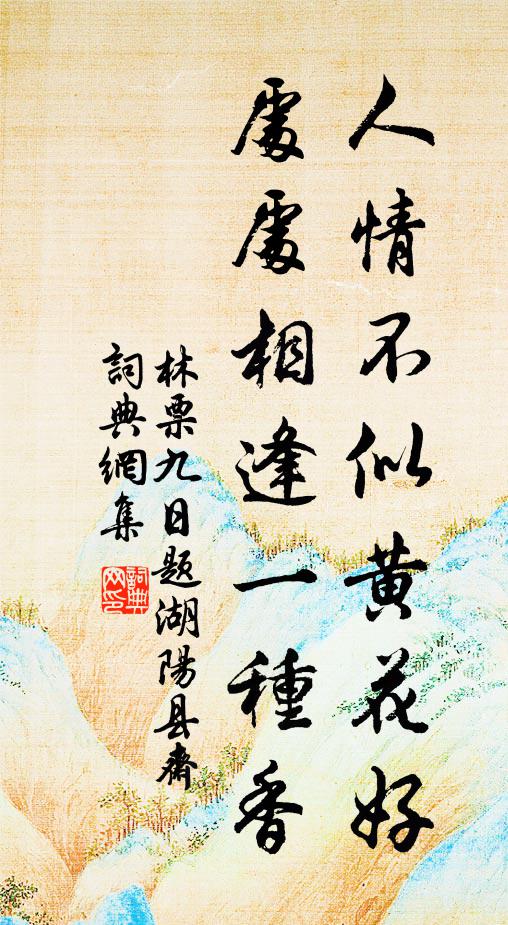 人情不似黄花好
處處相逢一種香
林栗九日题湖陽县齋
詞典網集
詞典
网印